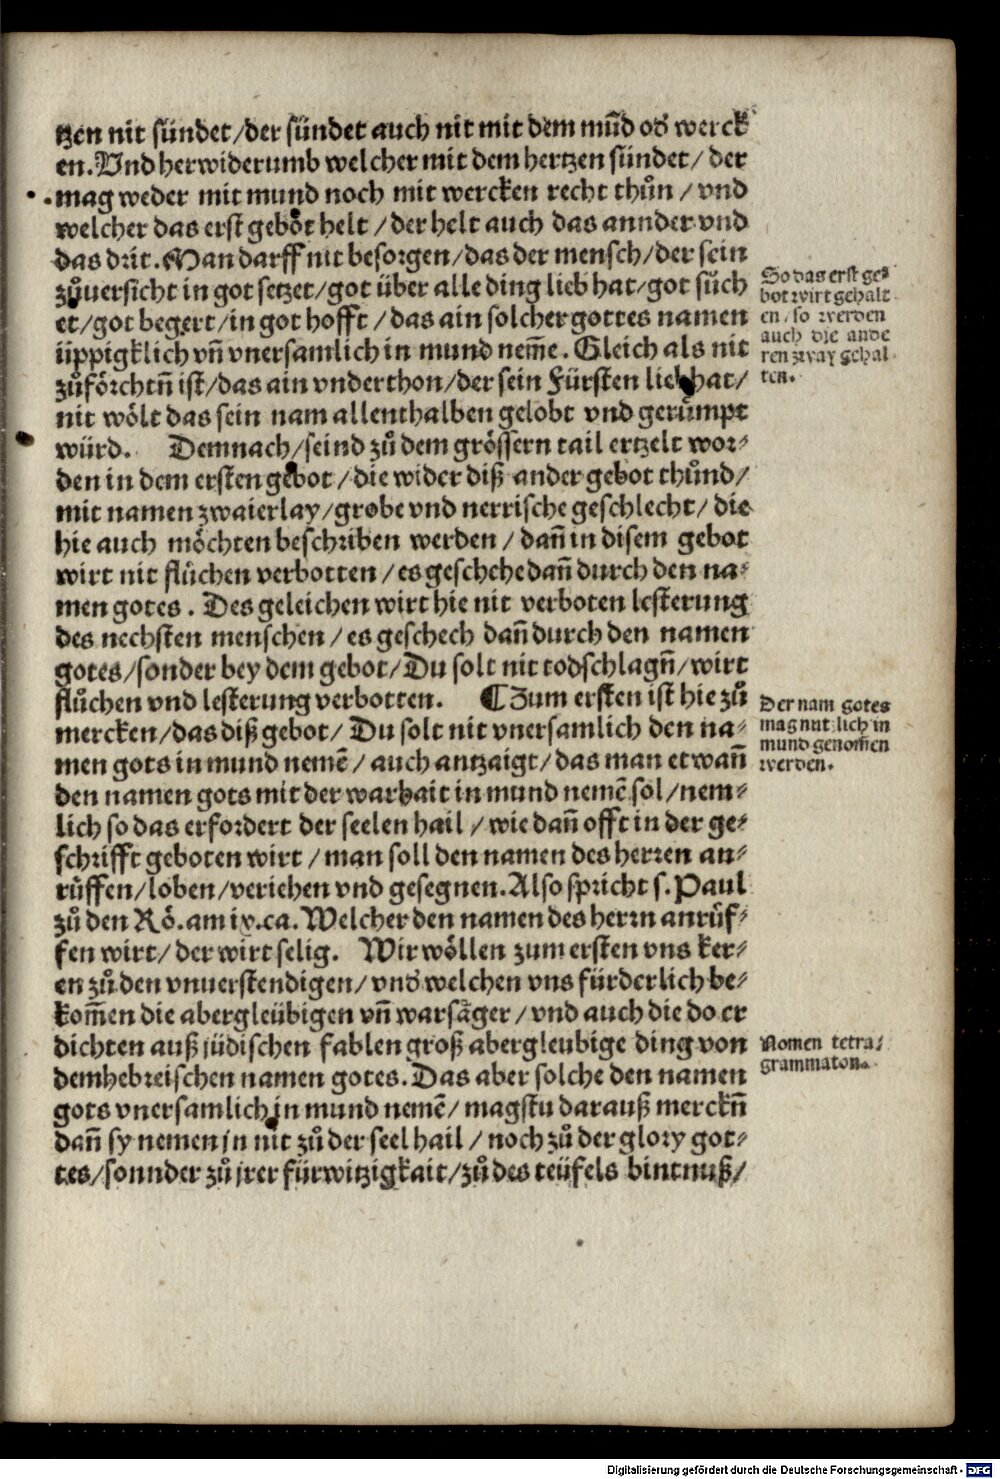 tzen nit sündet/der sündet auch nit mit dem mũd od' werck
en. Vnd herwiderumb welcher mit dem hertzen sündet/ der
mag weder mit mund noch mit wercken recht thůn / vnd
welcher das erst gebot helt / der helt auch das annder vnd
das drit. Man darff nit besorgen/das der mensch/der sein
zůuersicht in got setzet/got über alle ding lieb hat/got sůch
et/got begert/in got hofft / das ain solcher gottes namen
üppigklich vñ vnersamlich in mund nem̃e. Gleich als nit
zůförchtñ ist/das ain vnderthon/der sein Fürsten lieb hat/
nit wölt das sein nam allenthalben gelobt vnd gerůmpt
würd. Demnach/seind zů dem grössern tail ertzelt wor⸗
den in dem ersten gebot / die wider diß ander gebot thůnd/
mit namen zwaierlay/grobe vnd nerrische geschlecht/ die
hie auch möchten beschriben werden / dañ in disem gebot
wirt nit flůchen verbotten / es geschehe dañ durch den na⸗
men gotes. Des geleichen wirt hie nit verboten lesterung
des nechsten menschen / es geschech dañ durch den namen
gotes/sonder bey dem gebot/Du solt nit todschlagñ/wirt
flůchen vnd lesterung verbotten. ¶ Zum ersten ist hie zů
mercken/das diß gebot/ Du solt nit vnersamlich den na⸗
men gots in mund nemẽ/ auch antzaigt/das man etwañ
den namen gots mit der warhait in mund nemẽ sol/nem⸗
lich so das erfordert der seelen hail / wie dañ offt in der ge⸗
schrifft geboten wirt / man soll den namen des herren an⸗
růffen/loben/veriehen vnd gesegnen. Also spricht s. Paul
zů den Rö. am ix. ca. Welcher den namen des herrn anrůf⸗
fen wirt/ der wirt selig. Wir wöllen zum ersten vns ker⸗
en zů den vnuerstendigen/ vnd' welchen vns fürderlich be⸗
kom̃en die abergleübigen vñ warsager / vnd auch die do er
dichten auß jüdischen fablen groß abergleubige ding von
dem hebreischen namen gotes. Das aber solche den namen
gots vnersamlich in mund nemẽ/ magstu darauß merckñ
dañ sy nemen jn nit zů der seel hail / noch zů der glory got⸗
tes/sonnder zů jrer fürwitzigkait/zů des teüfels bintnuß/
So das erst ge⸗
bot wirt gehalt
en/so werden
auch die ande
ren zway gehal
ten.
Der nam gotes
mag nutzlich in
mund genom̃en
werden.
Nomen tetra⸗
grammaton.
Digitalisierung gefördert durch die Deutsche Forschungsgemeinschaft - DFG